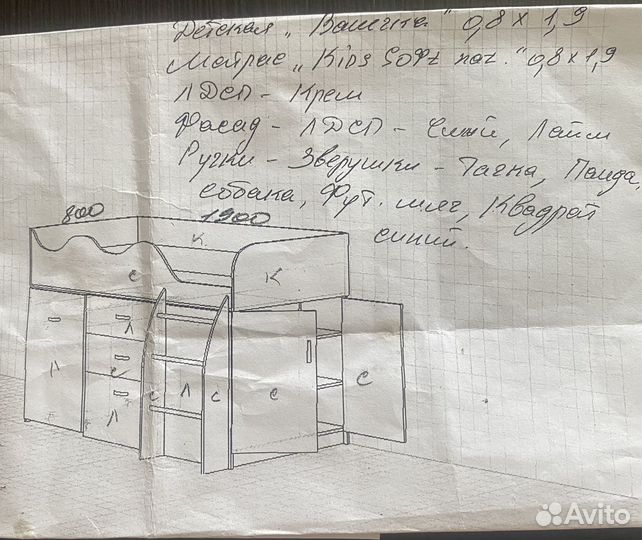 Детская „Ванечка" 0,8 х 1,9
Матрас „Kids Soft nat." 0,8 х 1,9
ЛДСП - Крем
Фасад - ЛДСП - Синий, Лайм
Ручки - Зверушки - Тачка, Панда,
собака, Фут. мяч, Квадрат
синий.
800
1900
К
С
К
Л
Л
С
Л
С
Л
С
С
С
Avito